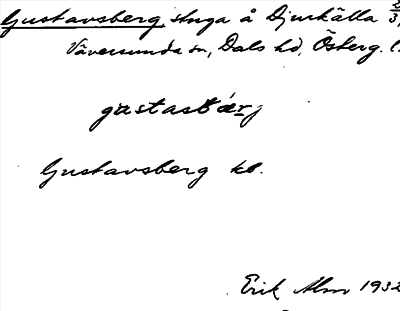 Gustavsberg, stuga å Djurkälla 2/3,
Väversunda sn, Dals hd, Österg. l.
Gustavsberg kb.
Erik Alm 1932